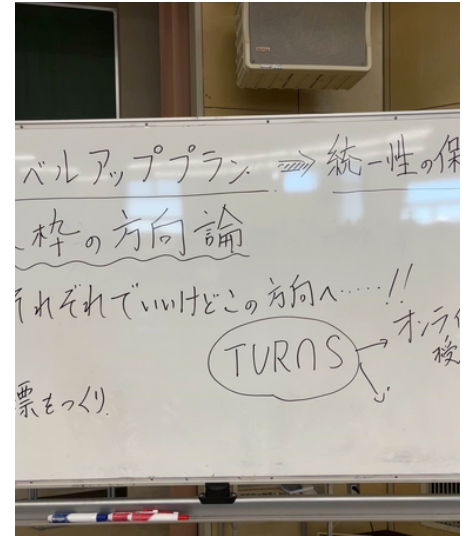 ベルアッププラン ⇒ 統一性の保
枠の方向論
それぞれでいいけどこの方向へ……!!
TURNS → オンライ
授
票をつくり